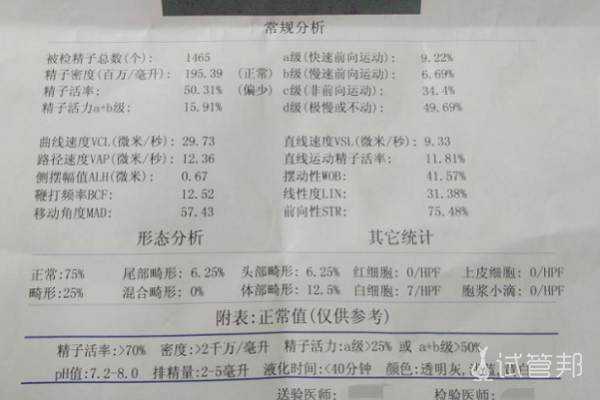 常规分析
被检精子总数(个): 1465 a级(快速前向运动): 9.22%
精子密度(百万/毫升): 195.39 (正常) b级(慢速前向运动): 6.69%
精子活率: 50.31% (偏少) c级(非前向运动): 34.4%
精子活力a+b级: 15.91% d级(极慢或不动): 49.69%
曲线速度VCL(微米/秒): 29.73 直线速度VSL(微米/秒): 9.33
路径速度VAP(微米/秒): 12.36 直线运动精子活率: 11.81%
侧摆幅值ALH(微米): 0.67 摆动性WOB: 41.57%
鞭打频率BCF: 12.52 线性度LIN: 31.38%
移动角度MAD: 57.43 前向性STR: 75.48%
形态分析 其它统计
正常:75% 尾部畸形: 6.25% 头部畸形: 6.25% 红细胞: 0/HPF 上皮细胞: 0/HPF
畸形:25% 混合畸形: 0% 体部畸形: 12.5% 白细胞: 7/HPF 胞浆小滴: 0/HPF
附表:正常值(仅供参考)
精子活率:>70% 密度:>2千万/毫升 精子活力:a级>25% 或 a+b级>50%
pH值:7.2-8.0 排精量:2-5毫升 液化时间:<40分钟 颜色:透明灰,
试管邦
送验医师: 检验医师: